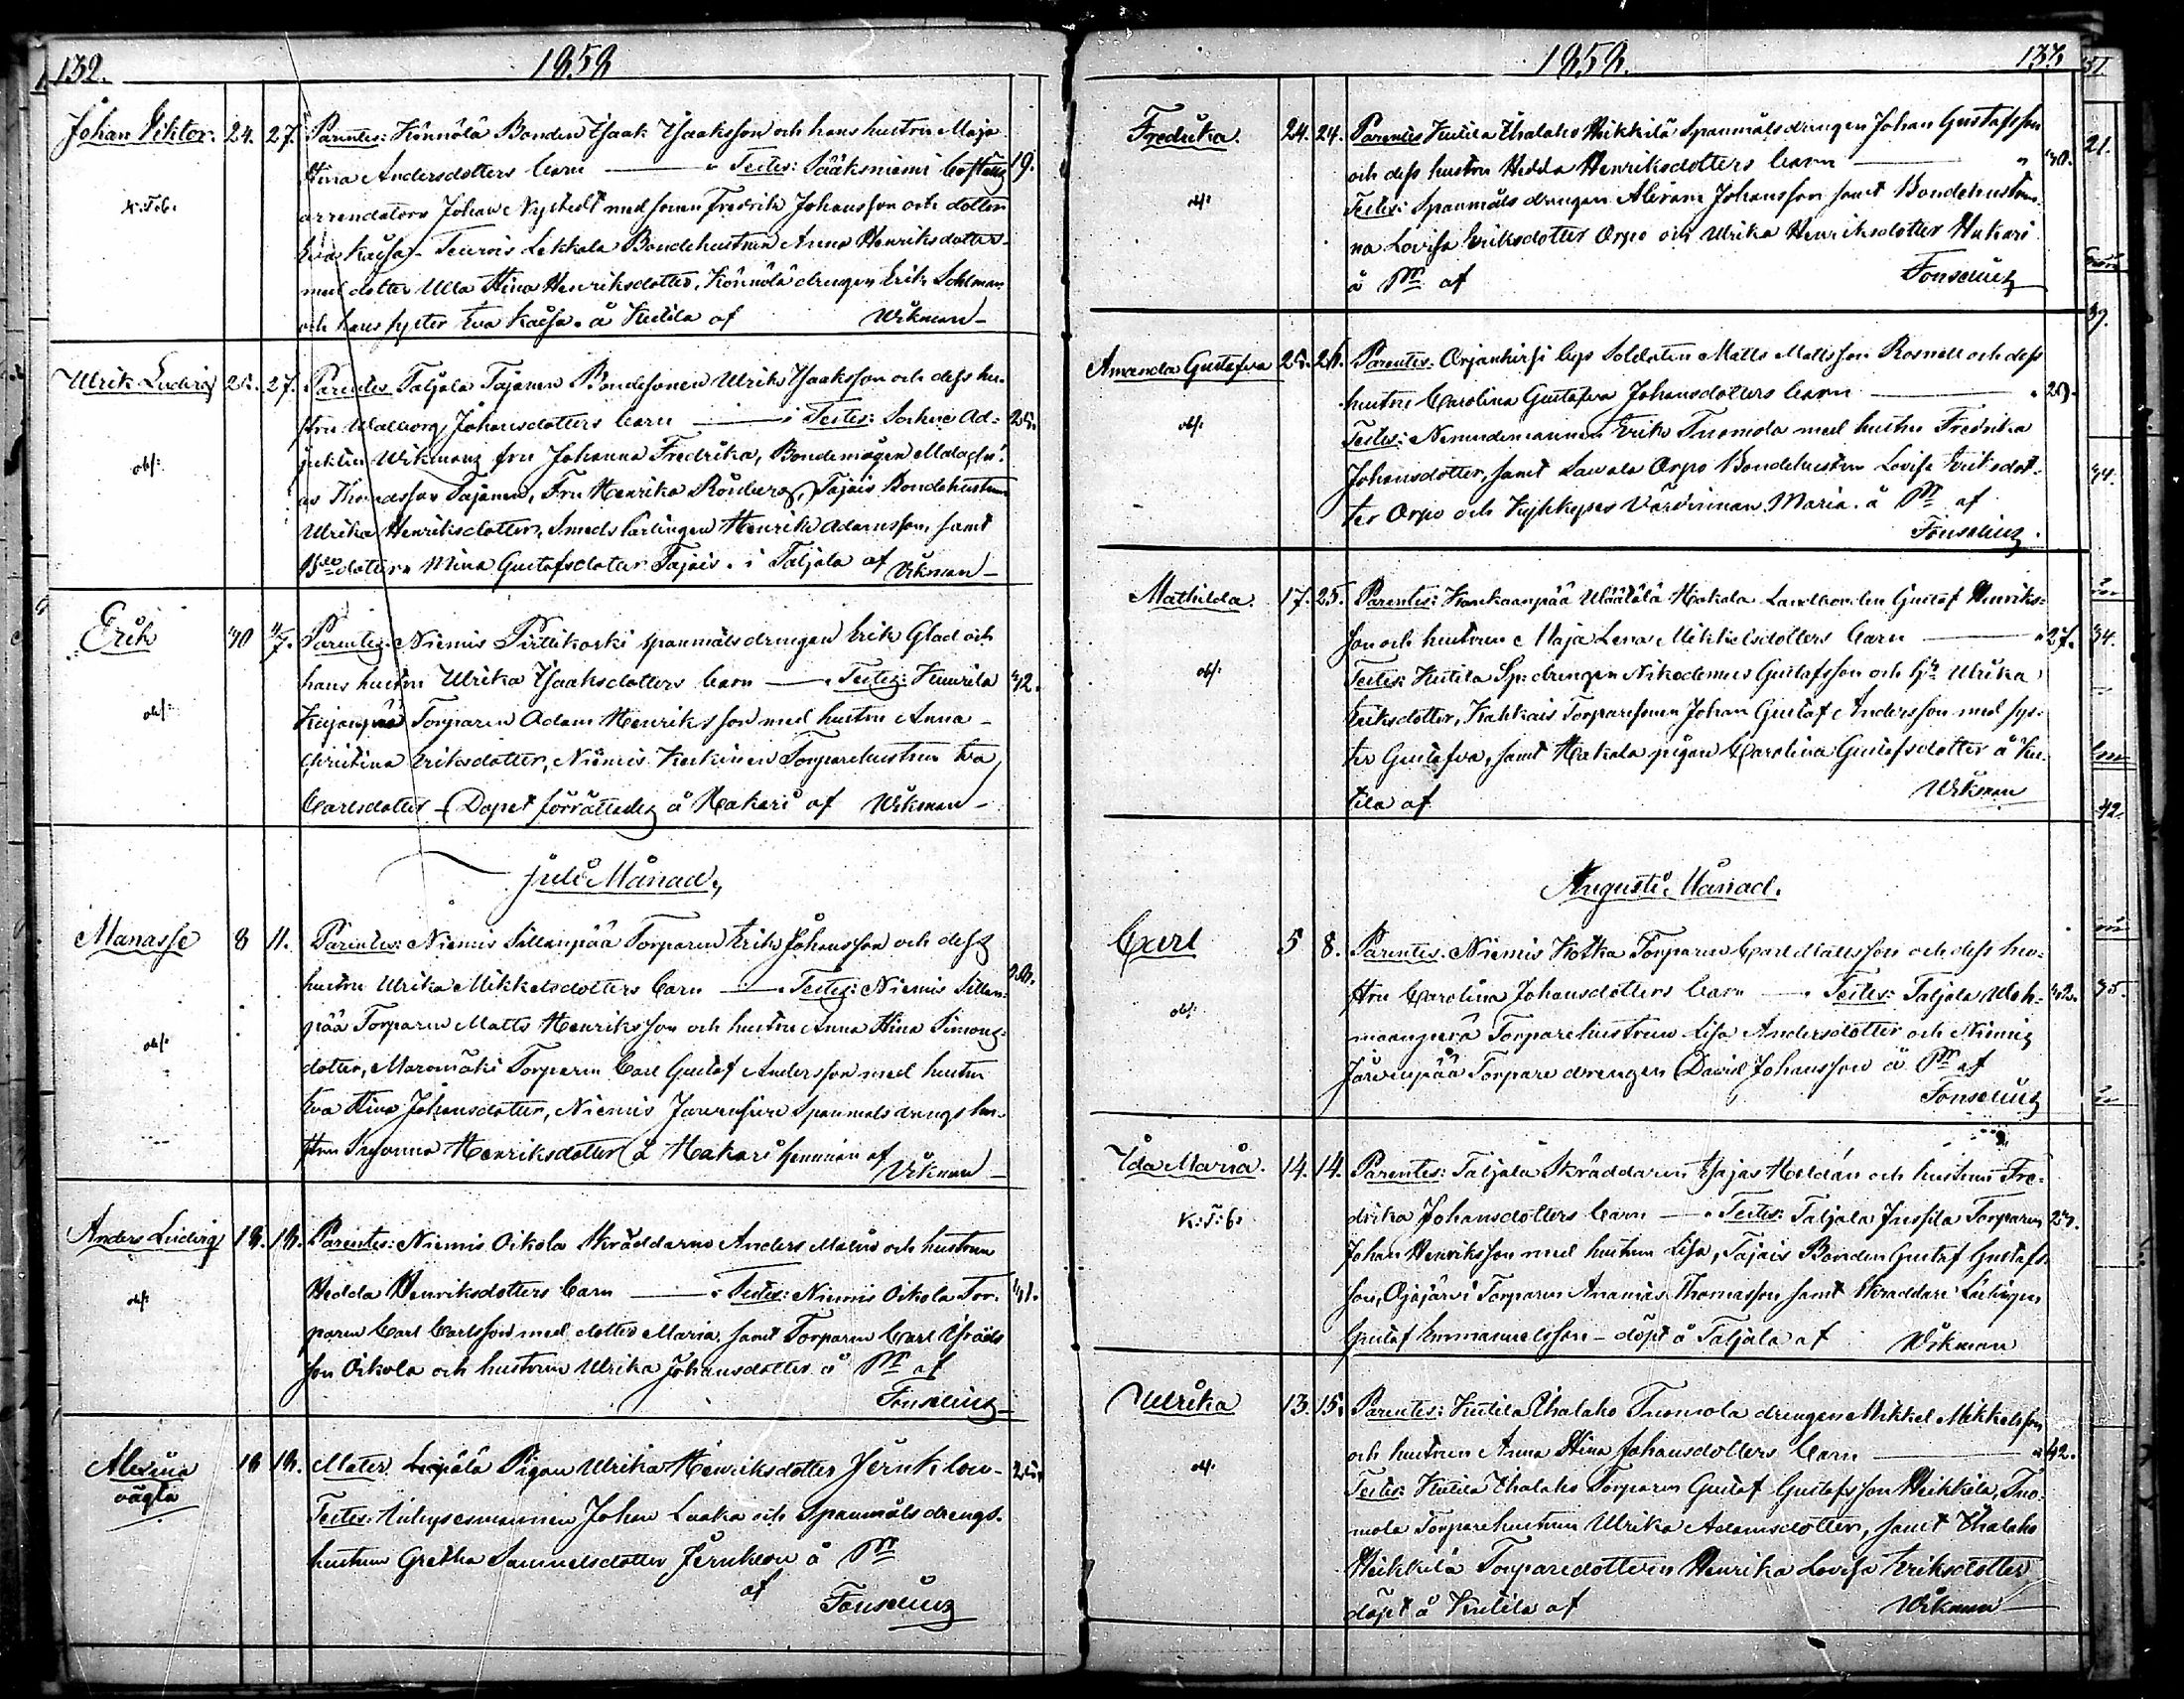 132.
1858
Johan Viktor. 24. 27. Parentes: Könnölä Bonden Isaak Isaaksson och hans hustru Maja
Stina Andersdotters barn — Testes: Sääksniemi 19.
k.T.b.
arrendatorn Johan Nystedt med sonen Fredrik Johansson och dottren
Eva Kaisa - Lekkala Bondehustrun Anna Henriksdotter
med dotter Ulla Stina Henriksdotter, Könnölä drengen Erik Sohlman
och hans syster Eva Kaisa. å Kutila af Wikman
Ulrik Ludvig 25. 27. Parentes Taljala Tajanen Bondesonen Ulrik Isaaksson och dess hu-
stru Walborg Johansdotters barn — Testes: Sockne Ad- 25.
junkten Wikmans fru Johanna Fredrika, Bondemågen
obs:
as Thomasson Tajanen, Fru Henrika Tajais Bondehustrun
Ulrika Henriksdotter, Smedslärlingen Henrik Adamsson, samt
dottern Mina Gustafsdotter Tajais. i Taljala af Wikman
Erik 30 4/7. Parentes. Niemis Pirttikoski spanmålsdrengen Erik Glad och
hans hustru Ulrika Isaaksdotters barn — Testes: 42.
obs:
Torparen Adam Henriksson med hustru Anna
Christina Eriksdotter, Niemis Torparehustrun Eva
Carlsdotter - Dopet förrättades å Hakari af Wikman
Juli Månad.
Manasse 8 11. Parentes: Niemis Sillanpää Torparen Erik Johansson och dess
hustru Ulrika Mikkelsdotters barn — Testes: Niemis Sillan-
pää Torparen Matts Henriksson och hustru Anna Stina Simons-
obs:
dotter, Maromäki Torparen Carl Gustaf Andersson med hustru
Eva Stina Johansdotter, Niemis Spanmålsdrengs hu-
stru Susanna Henriksdotter å Hakari hemman af Wikman
Anders Ludvig 18. 18. Parentes: Niemis Oikola Skräddaren Anders Malin och hustrun
Hedda Henriksdotters barn — Testes: Niemis Oikola Tor- 41.
obs:
paren Carl Carlsson med dotter Maria, samt Torparen Carl Israels
son Oikola och hustrun Ulrika Johansdotter å Pr af
Fonselius
Alexina 18 18. Mater. Leppälä Pigan Ulrika Henriksdotter 25.
oägta
Testes. Johan Laaka och Spanmålsdrengs-
hustrun Gretha Samuelsdotter å Pr
af Fonselius
1858.
133
Fredrika. 24. 24. Parentes Kutila Uhalaho Heikkilä Spanmålsdrengen Johan Gustafsson
och dess hustru Hedda Henriksdotters barn — 30.
obs:
Testes: Spanmålsdrengen Abram Johansson samt Bondehustrur-
na Lovisa Eriksdotter Orpo och Ulrika Henriksdotter Hakari
å Pr af Fonselius
Amanda Gustafva 25. 26. Parentes. Orjanhirsi bys Soldaten Matts Mattsson Rosnell och dess
hustru Carolina Gustafva Johansdotters barn — 29.
obs:
Testes: Nämndemannen Erik Tuomola med hustru Fredrika
Johansdotter, samt Lawala Orpo Bondehustrun Lovisa Eriksdot-
ter Orpo och Värdinnan Maria. å Pr af
Fonselius.
Mathilda. 17. 25. Parentes: Kankaanpää Uläätälä Hakala Landbonden Gustaf Henriks-
son och hustrun Maja Lena Mikkelsdotters barn — 27.
obs:
Testes: Kutila Sp: drengen Nikodemus Gustafsson och Hu Ulrika
Eriksdotter, Torparesonen Johan Gustaf Andersson med sys-
ter Gustafva, samt Hakala pigan Carolina Gustafsdotter å Ku-
tila af Wikman
Augusti Månad.
Carl 5 8. Parentes. Niemis Kotka Torparen Carl Mattsson och dess hu-
stru Carolina Johansdotters barn — Testes: Taljala 42.
obs:
Torparehustrun Lisa Andersdotter och Niemis
Järvenpää Torparedrengen David Johansson å Pr af
Fonselius
Ida Maria. 14. 14. Parentes: Taljala Skräddaren Esajas Heldán och hustrun Fre-
drika Johansdotters barn — Testes: Taljala Jussila Torparen 27.
k:T:b:
Johan Henriksson med hustrun Lisa, Tajais Bonden Gustaf Gustafs-
son, Ojajärvi Torparen Ananias Thomasson samt Skräddare Lärlingen
Gustaf Emmanuelsson - döpt å Taljala af Wikman
Ulrika 13. 15. Parentes: Kutila Uhalaho Tuomola drengen Mikkel Mikkelsson
och hustrun Anna Stina Johansdotters barn — 42.
obs:
Testes: Kutila Uhalaho Torparen Gustaf Gustafsson Heikkilä, Tuo-
mola Torparehustrun Ulrika Adamsdotter, samt Uhalaho
Heikkilä Torparedottern Henrika Lovisa Eriksdotter
döpt å Kutila af Wikman